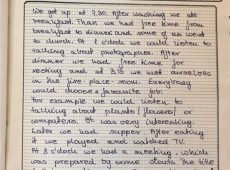 We got up at 7.30. After washing we ate
breakfast. Than we had free time from
breakfast to dinner and some of us went
to church. At 1 o'clock we could listen to
talking about photographer. After
dinner we had free time for
resting and at 2.15 we met ourselves
in the fire place room. Everybody
could choose a favourite job.
For example we could listen to
talking about plants (flowers) or
computers. It was very interesting.
Later we had supper. After eating
it we played and watched TV.
At 8 o'clock we had a meeting which
was prepared by some